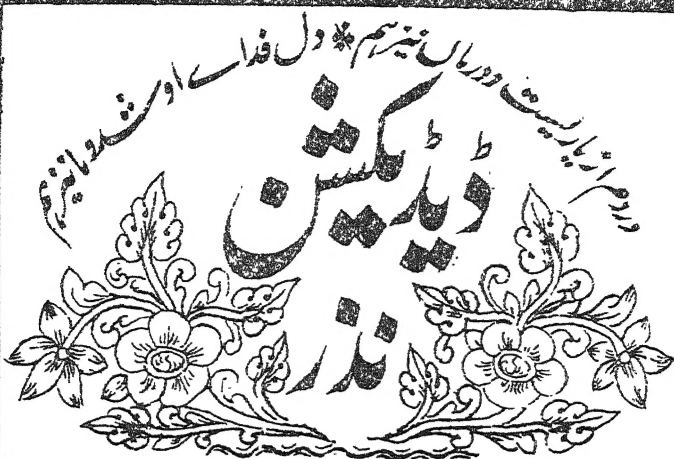 دردم از یارست و درماں نیز ہم * دل فداے او شد و جاں نیز ہم
ڈیڈیکیشن
نذر